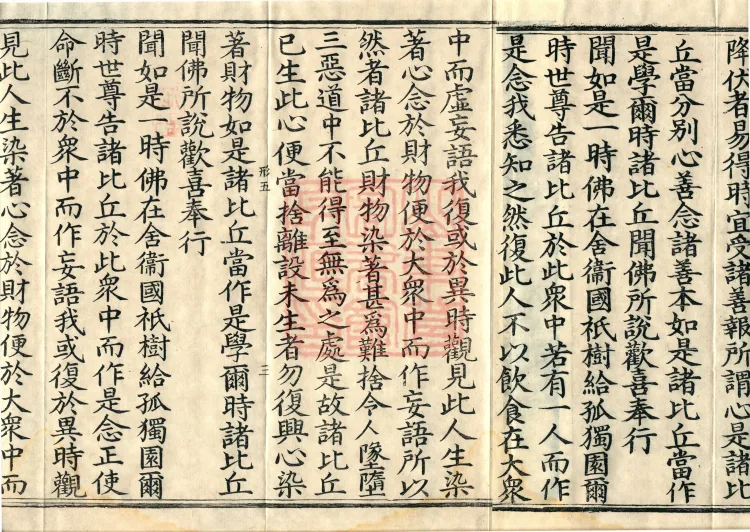 降伏者易得時宜受諸善報所謂心是諸比
丘當分別心善念諸善本如是諸比丘當作
是學爾時諸比丘聞佛所說歡喜奉行
聞如是一時佛在舍衞國祇樹給孤獨園爾
時世尊告諸比丘於此衆中若有一人而作
是念我悉知之然復此人不以飲食在大衆
中而虛妄語我復或於異時觀見此人生染
著心念於財物便於大衆中而作妄語所以
然者諸比丘財物染著甚爲難捨令人墜墮
三惡道中不能得至無爲之處是故諸比丘
已生此心便當捨離設未生者勿復興心染
形五
三
著財物如是諸比丘當作是學爾時諸比丘
聞佛所說歡喜奉行
聞如是一時佛在舍衞國祇樹給孤獨園爾
時世尊告諸比丘於此衆中而作是念正使
命斷不於衆中而作妄語我或復於異時觀
見此人生染著心念於財物便於大衆中而